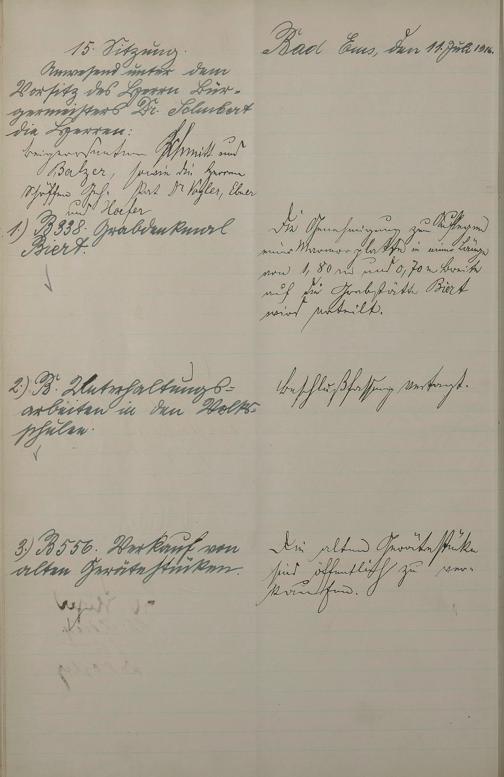 15. Sitzung.
Anwesend unter dem
Vorsitz des Herrn Bür-
germeisters Dr. Schubert
die Herren:
Beigeordneten Schmitt und
Balzer, sowie die Herren
Schöffen Geh. Rat Dr Vogler, Ebner
und Hofer
Bad Ems, den 11. Juli 1916.
1.) B 338. Grabdenkmal
Biert.
Die Genehmigung zur Auflegung
einer Marmorplatte in einer Länge
von 1,80 m und 0,70 m Breite
auf die Grabstätte Biert
wird erteilt.
2.) B. Unterhaltungs=
arbeiten in den Volks-
schulen.
Beschlußfassung vertagt.
3.) B 556. Verkauf von
alten Gerätestücken.
Die alten Gerätestücke
sind öffentlich zu ver-
kaufen.